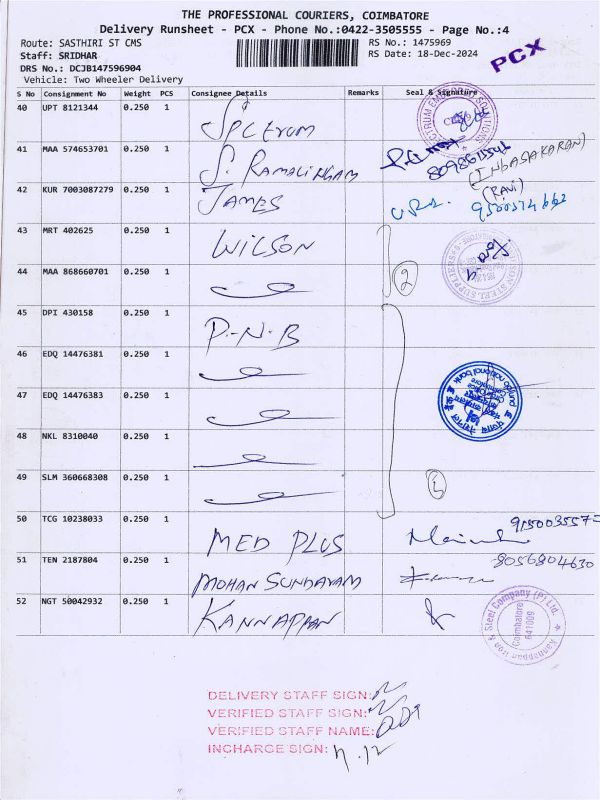 THE PROFESSIONAL COURIERS, COIMBATORE
Delivery Runsheet - PCX - Phone No.:0422-3505555 - Page No.:4
Route: SASTHIRI ST CMS RS No.: 1475969
Staff: SRIDHAR RS Date: 18-Dec-2024
PCX
DRS No.: DCJB147596904
Vehicle: Two Wheeler Delivery
S No Consignment No Weight PCS Consignee Details Remarks Seal & Signature
40 UPT 8121344 0.250 1 Spectrum
41 MAA 574653701 0.250 1 S. RAMALINGAM
(INBASAKARAN)
42 KUR 7003087279 0.250 1 JAMES (RAVI)
43 MRT 402625 0.250 1 WILSON
44 MAA 868660701 0.250 1 2
45 DPI 430158 0.250 1 P.N.B
46 EDQ 14476381 0.250 1
47 EDQ 14476383 0.250 1
48 NKL 8310040 0.250 1
49 SLM 360668308 0.250 1
50 TCG 10238033 0.250 1 MED PLUS
51 TEN 2187804 0.250 1 MOHAN SUNDARAM 8056804630
52 NGT 50042932 0.250 1 KANNAPPAN
Kannappan Iron & Steel Company (P) Ltd.
Coimbatore
641009
DELIVERY STAFF SIGN:
VERIFIED STAFF SIGN:
VERIFIED STAFF NAME:
INCHARGE SIGN: